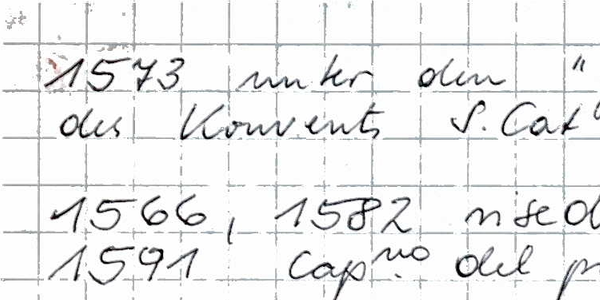 1573 unter den "
des Konvents S. Cat
1566, 1582 rised
1591 cap.no del pr